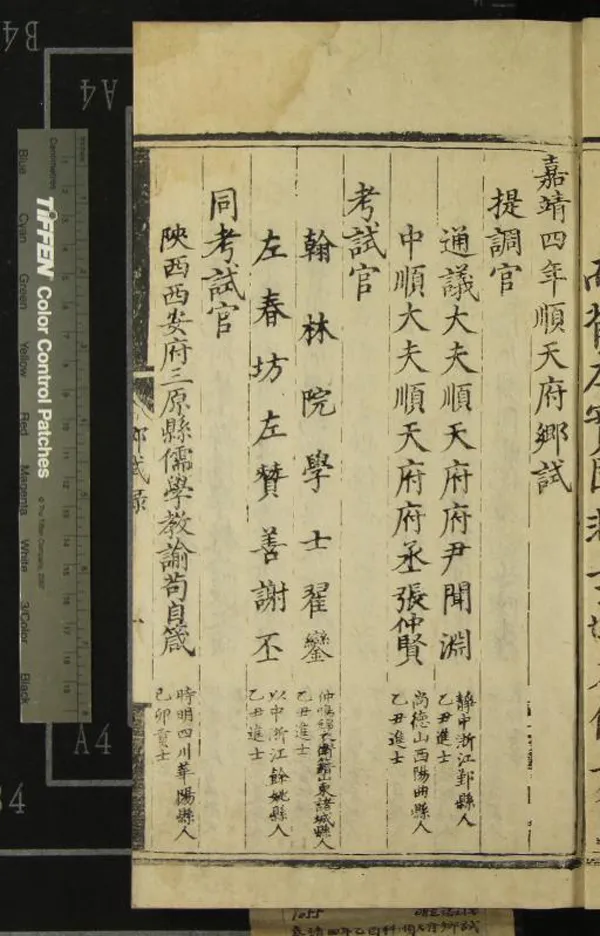 嘉靖四年順天府鄉試
提調官
通議大夫順天府府尹聞淵
靜中浙江鄞縣人
乙丑進士
中順大夫順天府府丞張仲賢
尚德山西陽曲縣人
乙丑進士
考試官
翰林院學士翟鑾
乙丑進士
左春坊左贊善謝丕
以中浙江餘姚縣人
乙丑進士
同考試官
陝西西安府三原縣儒學教諭苟自箴
時明四川華陽縣人
己卯貢士
鄉試錄
B4
A4
A4
Centimetres
Inches
TIFFEN Color Control Patches
© The Tiffen Company, 2007
Blue
Cyan
Green
Yellow
Red
Magenta
White
3/Color
Black
1055